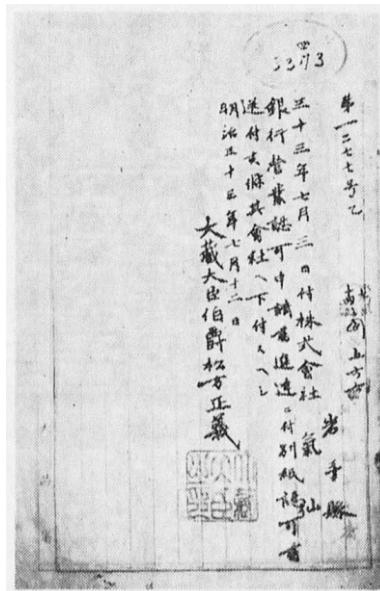 第一二七七号乙
岩手縣
三十三年七月三日付株式會社氣仙
銀行營業認可申請書進達ニ付別紙認可書
送付去條其會社ヘ下付スヘシ
明治三十三年七月十二日
大藏大臣伯爵松方正義